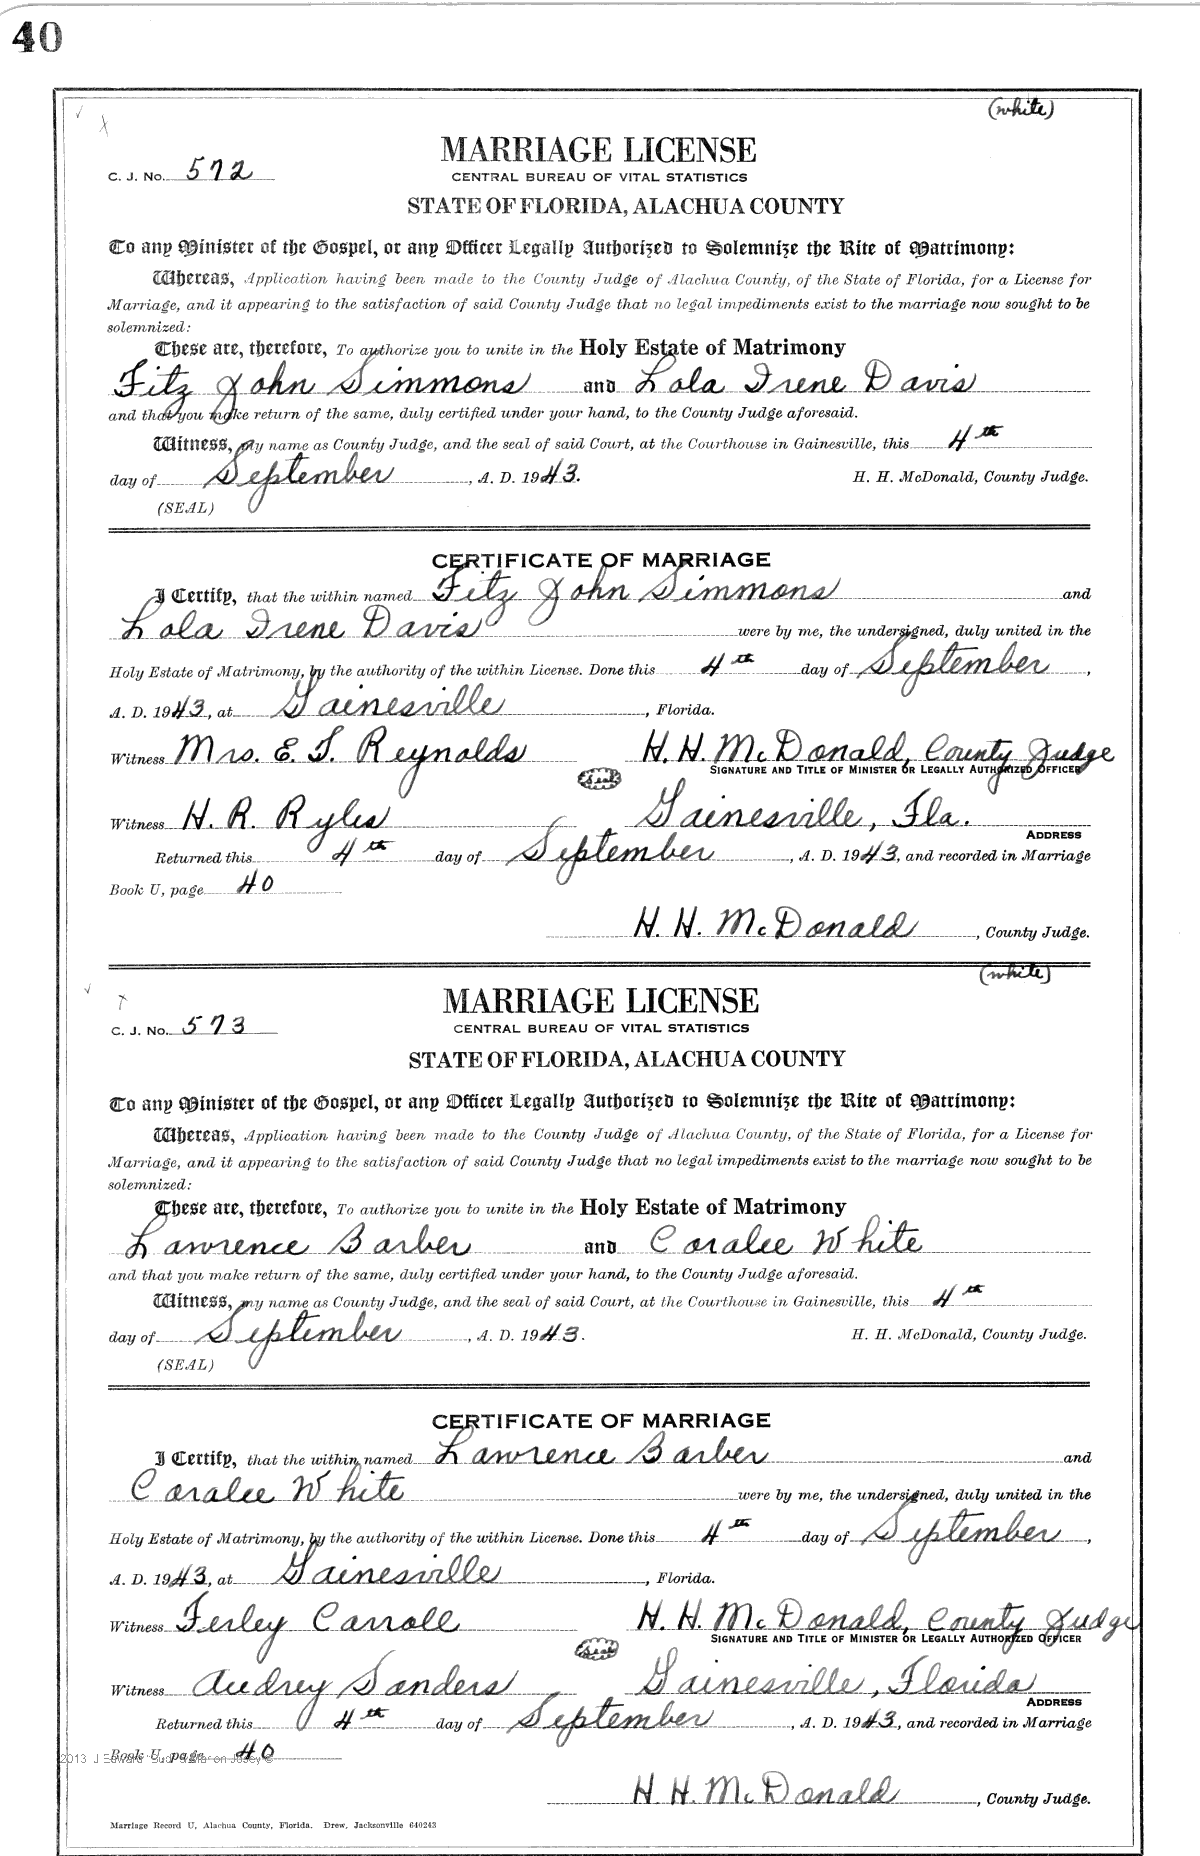 40
(white)
MARRIAGE LICENSE
C. J. No. 572
CENTRAL BUREAU OF VITAL STATISTICS
STATE OF FLORIDA, ALACHUA COUNTY
To any Minister of the Gospel, or any Officer Legally Authorized to Solemnize the Rite of Matrimony:
Whereas, Application having been made to the County Judge of Alachua County, of the State of Florida, for a License for
Marriage, and it appearing to the satisfaction of said County Judge that no legal impediments exist to the marriage now sought to be
solemnized:
These are, therefore, To authorize you to unite in the Holy Estate of Matrimony
Fitz John Simmons and Lola Irene Davis
and that you make return of the same, duly certified under your hand, to the County Judge aforesaid.
Witness, my name as County Judge, and the seal of said Court, at the Courthouse in Gainesville, this 4th
day of September, A. D. 1943. H. H. McDonald, County Judge.
(SEAL)
CERTIFICATE OF MARRIAGE
I Certify, that the within named Fitz John Simmons and
Lola Irene Davis were by me, the undersigned, duly united in the
Holy Estate of Matrimony, by the authority of the within License. Done this 4th day of September,
A. D. 1943, at Gainesville, Florida.
Witness Mrs. E. F. Reynolds H. H. McDonald, County Judge
Seal SIGNATURE AND TITLE OF MINISTER OR LEGALLY AUTHORIZED OFFICER
Witness H. R. Ryles Gainesville, Fla.
ADDRESS
Returned this 4th day of September, A. D. 1943, and recorded in Marriage
Book U, page 40
H. H. McDonald, County Judge.
(white)
MARRIAGE LICENSE
C. J. No. 573
CENTRAL BUREAU OF VITAL STATISTICS
STATE OF FLORIDA, ALACHUA COUNTY
To any Minister of the Gospel, or any Officer Legally Authorized to Solemnize the Rite of Matrimony:
Whereas, Application having been made to the County Judge of Alachua County, of the State of Florida, for a License for
Marriage, and it appearing to the satisfaction of said County Judge that no legal impediments exist to the marriage now sought to be
solemnized:
These are, therefore, To authorize you to unite in the Holy Estate of Matrimony
Lawrence Barber and Coralee White
and that you make return of the same, duly certified under your hand, to the County Judge aforesaid.
Witness, my name as County Judge, and the seal of said Court, at the Courthouse in Gainesville, this 4th
day of September, A. D. 1943. H. H. McDonald, County Judge.
(SEAL)
CERTIFICATE OF MARRIAGE
I Certify, that the within named Lawrence Barber and
Coralee White were by me, the undersigned, duly united in the
Holy Estate of Matrimony, by the authority of the within License. Done this 4th day of September,
A. D. 1943, at Gainesville, Florida.
Witness Ferley Carroll H. H. McDonald, County Judge
Seal SIGNATURE AND TITLE OF MINISTER OR LEGALLY AUTHORIZED OFFICER
Witness Audrey Sanders Gainesville, Florida
ADDRESS
Returned this 4th day of September, A. D. 1943, and recorded in Marriage
Book U, page 40
2013 J Edward
H. H. McDonald, County Judge.
Marriage Record U, Alachua County, Florida. Drew, Jacksonville 640243